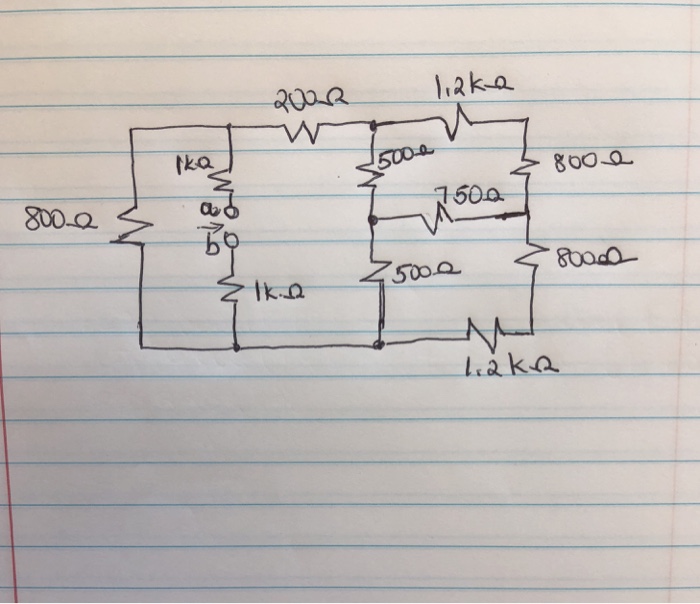 1.2kΩ
200Ω
1kΩ
500Ω
800Ω
a
750Ω
800Ω
b
500Ω
800Ω
1kΩ
1.2kΩ